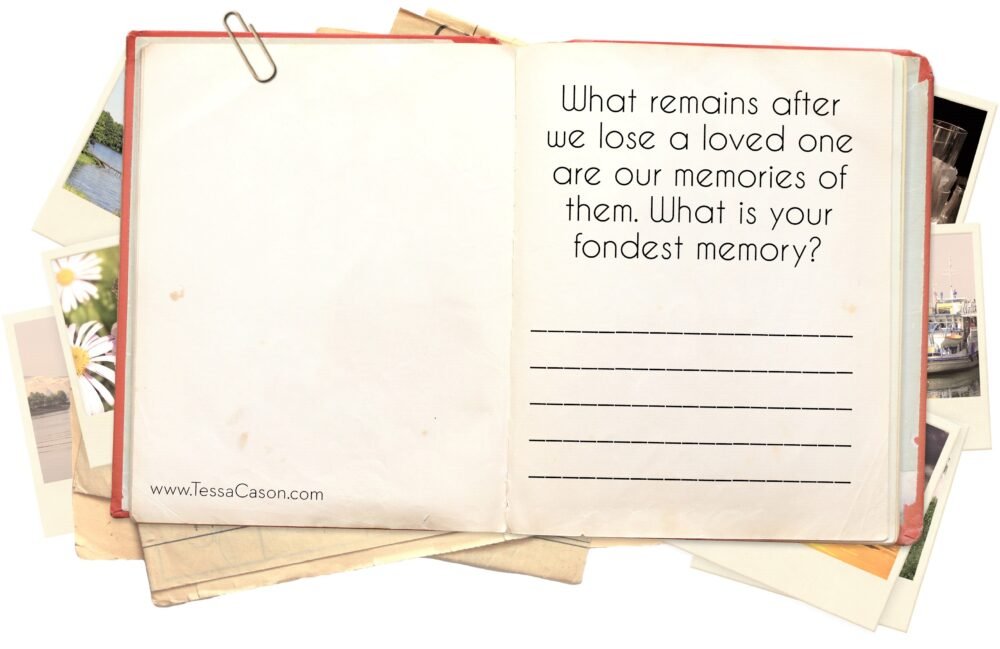 www.TessaCason.com
What remains after
we lose a loved one
are our memories of
them. What is your
fondest memory?